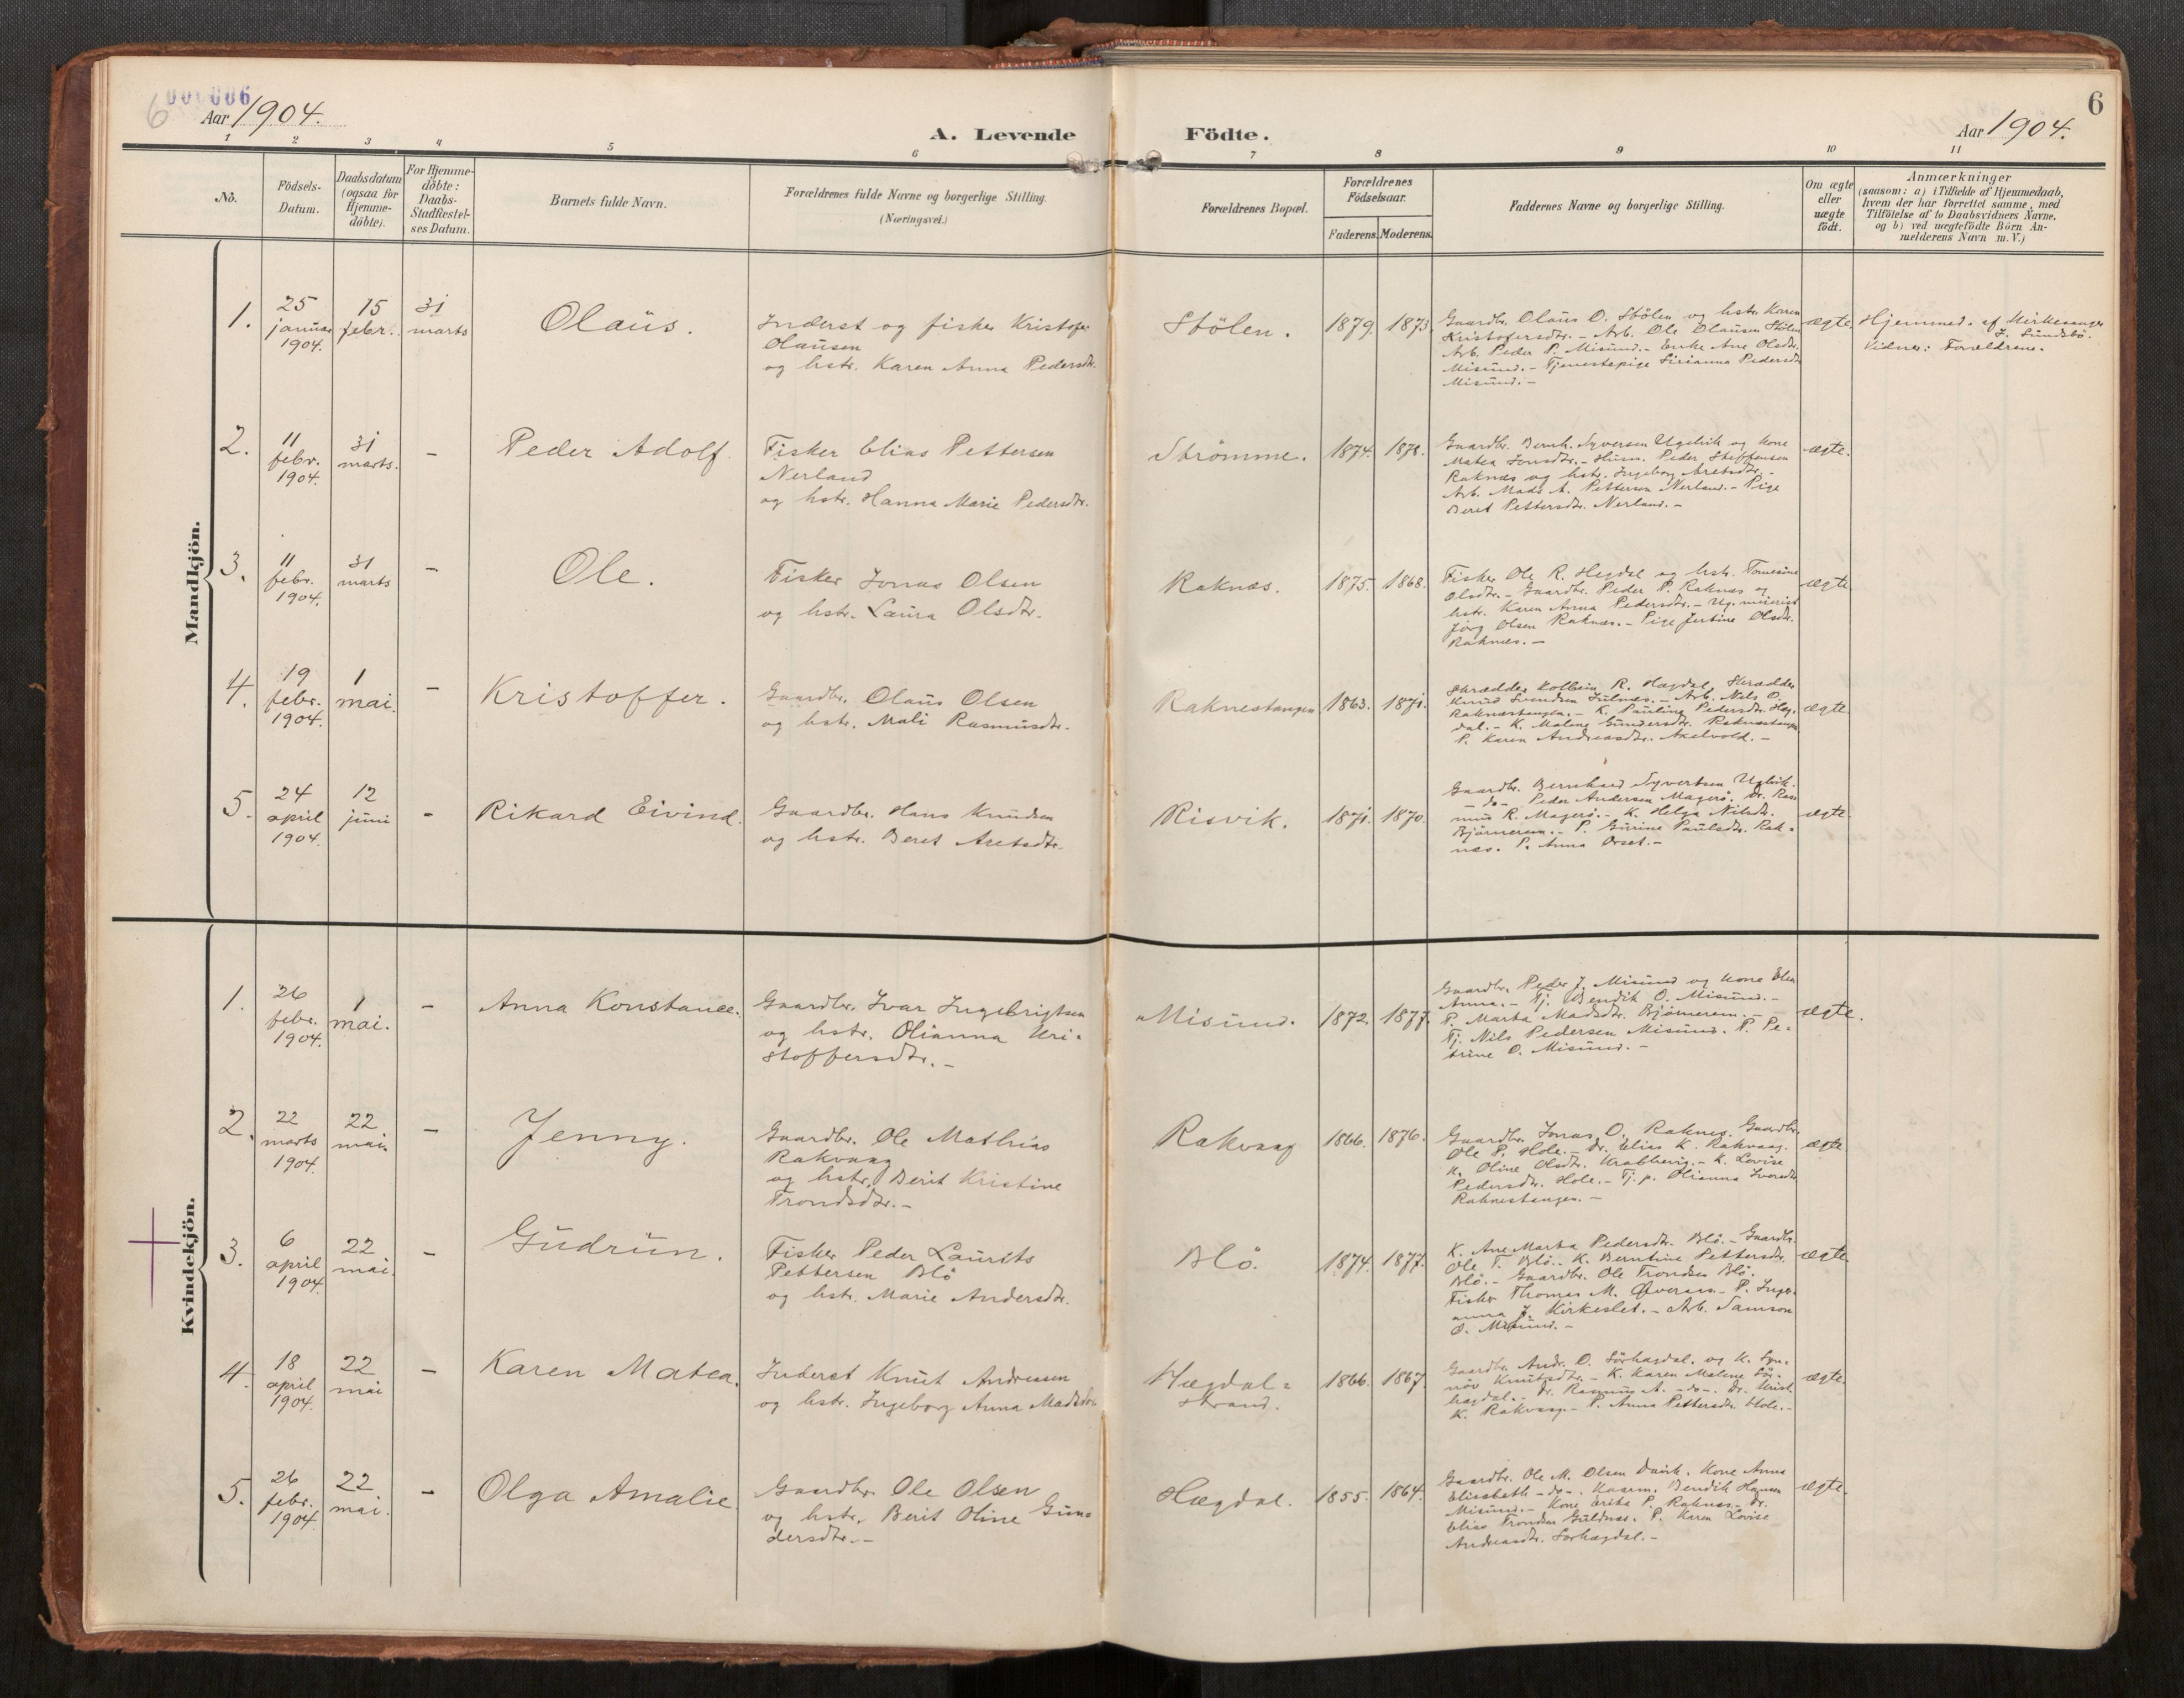 6 000006
Aar 1904.
A. Levende Födte.
6
Aar 1904.
1 2 3 4 5 6 7 8 9 10 11
No.
Födsels-
Datum.
Daabsdatum
(ogsaa for
Hjemme-
döbte).
For Hjemme-
döbte:
Daabs-
Stadfæstel-
ses Datum.
Barnets fulde Navn.
Forældrenes fulde Navne og borgerlige Stilling.
(Næringsvei.)
Forældrenes Bopæl.
Forældrenes
Födselsaar.
Faderens. Moderens.
Faddernes Navne og borgerlige Stilling.
Om ægte
eller
uægte
födt.
Anmærkninger
(saasom: a) i Tilfælde af Hjemmedaab,
hvem der har forrettet samme, med
Tilföielse af to Daabsvidners Navne,
og b) ved uægtefödte Börn An-
melderens Navn m. V.)
Mandkjön.
1.
25
januar
1904.
15
febr.
31
marts
Olaus.
Inderst og fisker Kristofer
Olausen
og hstr. Karen Anna Pedersdtr.
Stölen.
1879. 1873.
Gaardbr. Olaus O. Stölen og hstr. Karen
Kristofersdtr. - Arb. Ole Olausen Stölen
Arb. Peder P. Misund. - Enke Ane Olsdtr.
Misund. - Tjenestepige Sirianna Pedersdtr.
Misund. -
ægte.
Hjemmed. af Kirkesanger
J. Sundsbö.
Vidner: Forældrene.
2.
11
febr.
1904.
31
marts.
-
Peder Adolf.
Fisker Elias Pettersen
Nerland
og hstr. Hanna Marie Pedersdtr.
Strömme.
1874. 1878.
Gaardbr. Bernh. Syversen Ugelvik og kone
Matea Jonsdtr. - Husm. Peder Steffensen
Raknes og hstr. Ingeborg Aretsdtr. -
Arb. Mads A. Pettersen Nerland. - Pige
Beret Pettersdtr. Nerland. -
ægte.
3.
11
febr.
1904.
31
marts
-
Ole.
Fisker Jonas Olsen
og hstr. Laura Olsdtr.
Raknæs.
1875. 1868.
Fisker Ole R. Hegdal og hstr. Tomesine
Olsdtr. - Gaardbr. Peder P. Raknæs og
hstr. Karen Anna Pedersdtr. - Ug.
Jörg Olsen Raknæs. - Pige Jertine Olsdtr.
Raknæs. -
ægte
4.
19
febr.
1904.
1
mai.
-
Kristoffer.
Gaardbr. Olaus Olsen
og hstr. Mali Rasmusdtr.
Raknestangen
1863. 1871.
Skrædder Kolbein R. Hægdal, Skrædder
Knud Svendsen Julnæs. - Arb. Nils O.
Raknæstangen. - K. Pauline Pedersdtr. Hæg-
dal. - K. Malene Gundersdtr. Raknæstangen
P. Karen Andreasdtr. Axelvold. -
ægte
5.
24
april
1904.
12
juni
-
Rikard Eivind.
Gaardbr. Hans Knudsen
og hstr. Beret Aretsdtr.
Risvik.
1871. 1870.
Gaardbr. Bernhard Syvertsen Uglvik.
- do - Peder Andersen Magerö. Dr. Ras
mus R. Magerö. - K. Helga Nilsdtr.
Björnerem. - P. Gurine Paulsdtr. Rak-
næs. P. Anna Orset. -
ægte.
Kvindekjön.
1.
26
febr.
1904.
1
mai.
-
Anna Konstance.
Gaardbr. Ivar Ingebrigtsen
og hstr. Olianna Kri-
stoffersdtr. -
Misund.
1872. 1877.
Gaardbr. Peder J. Misund og kone Elen
Anna. - Tj. Bendik O. Misund. -
P. Marta Madsdtr. Björnerem. -
Tj. Nils Pedersen Misund. P. Pe-
trine O. Misund. -
ægte.
2.
22
marts
1904.
22
mai.
-
Jenny.
Gaardbr. Ole Mathias
Rakvaag
og hstr. Berit Kristine
Trondsdtr. -
Rakvaag
1866. 1876.
Gaardbr. Jonas O. Raknes. Gaardbr.
Ole P. Hole. - Dr. Elias K. Rakvaag.
K. Oline Olsdtr. Krabbevig. - K. Lovise
Pedersdtr. Hole. - Tj. p. Olianna Iversdtr.
Raknestangen. -
ægte
3.
6
april
1904.
22
mai.
-
Gudrun.
Fisker Peder Laurits
Pettersen Blö
og hstr. Marie Andersdtr.
Blö.
1874. 1877.
K. Ane Marta Pedersdtr. Blö. - Gaardbr.
Ole T. Blö. - K. Berntine Pettersdtr.
Blö. - Gaardbr. Ole Trondsen Blö.
Fisker Thomas M. Överaas. - P. Inger
anna J. Kirkeslet. - Arb. Samson
O. Misund. -
ægte
4.
18
april
1904.
22
mai
-
Karen Matea.
Inderst Knut Andreasen
og hstr. Ingeborg Anna Madsdtr.
Hægdal-
strand.
1866. 1867.
Gaardbr. Andr. O. Sörhægdal. og K. Syn-
növ Knutsdtr. - K. Karen Malene Sör-
hægdal. - Dr. Rasmus A. - do -. Dr. Krist.
K. Rakvaag. - P. Anna Pettersdtr. Hole. -
ægte.
5.
26
febr.
1904.
22
mai.
-
Olga Amalie.
Gaardbr. Ole Olsen
og hstr. Berit Oline Gun-
dersdtr. -
Hægdal.
1855. 1864.
Gaardbr. Ole M. Olsen Kone Anna
Elisabeth - do -. Husm. Bendik Hansen
Misund. - Kone Erika P. Raknæs. - Dr.
Elias Trondsen Guldnæs. P. Karen Lovise
Andreasdtr. Sorhægdal. -
ægte.